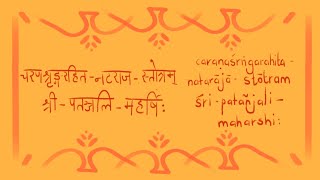 चरणशृङ्गरहित-नटराज-स्तोत्रम्
श्री-पतञ्जलि-महर्षिः
caraṇaśṛṅgarahita-
naṭarājā-stōtram
śrī-patañjali-
maharshi: